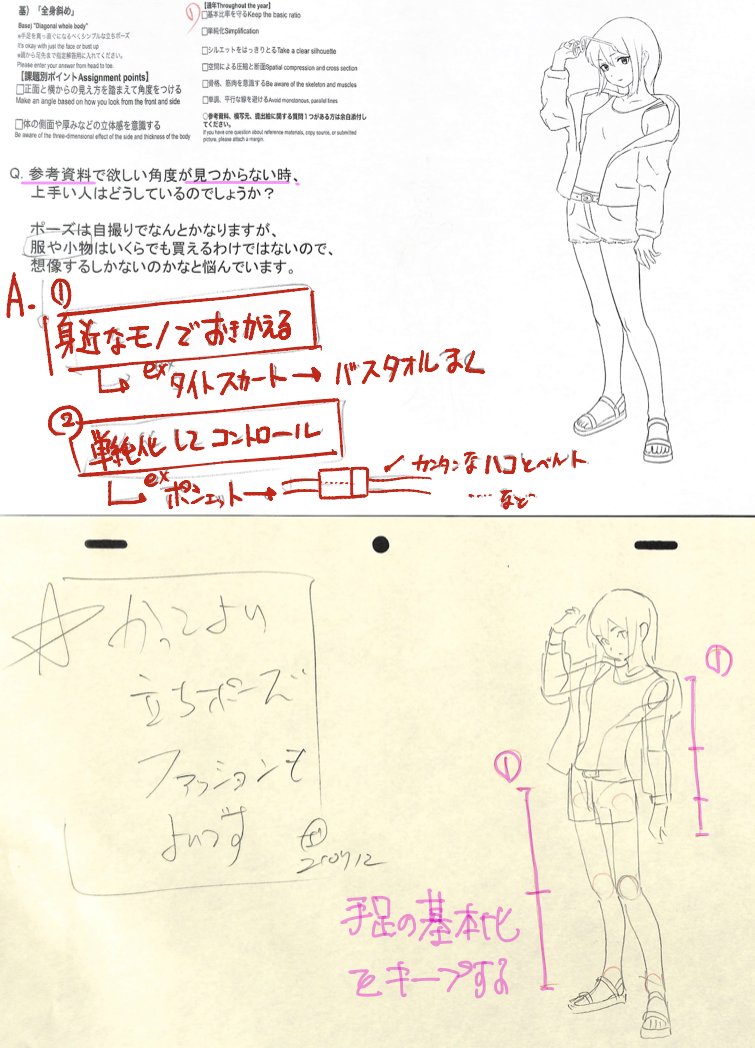 基) 「全身斜め」
Base) "Diagonal whole body"
※手足を真っ直ぐになるべくシンプルな立ちポーズ
It's okay with just the face or bust up
※頭から足先まで指定解答用に入れてください。
Please enter your answer from head to toe.
【課題別ポイントAssignment points】
□正面と横からの見え方を踏まえて角度をつける
Make an angle based on how you look from the front and side
□体の側面や厚みなどの立体感を意識する
Be aware of the three-dimensional effect of the side and thickness of the body
【通年Throughout the year】
① □基本比率を守るKeep the basic ratio
□単純化Simplification
□シルエットをはっきりとるTake a clear silhouette
□空間による圧縮と断面Spatial compression and cross section
□骨格、筋肉を意識するBe aware of the skeleton and muscles
□単調、平行な線を避けるAvoid monotonous, parallel lines
○参考資料、模写元、提出絵に関する質問1つがある方は余白添付してください。
If you have one question about reference materials, copy source, or submitted picture, please attach a margin.
Q. 参考資料で欲しい角度が見つからない時、
上手い人はどうしているのでしょうか？
ポーズは自撮りでなんとかなりますが、
服や小物はいくらでも買えるわけではないので、
想像するしかないのかなと悩んでいます。
A. ①
身近なモノでおきかえる
ex タイトスカート→バスタオルまく
②
単純化してコントロール
ex ポシェット→
カンタンなハコとベルト
....など
☆かっこよい
立ちポーズ
ファッションも
よいです
①
①
手足の基本比
をキープする